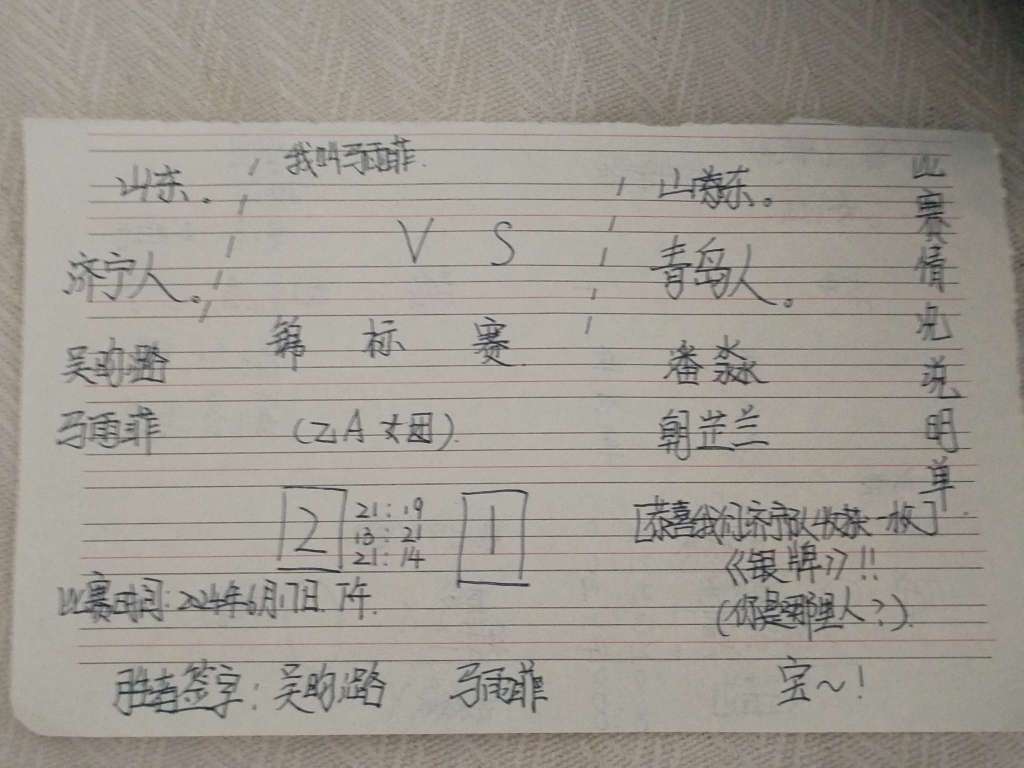 我叫马雨菲.
山东。
山东。
V S
济宁人。
青岛人。
锦 标 赛
吴昀潞
潘淼
马雨菲
(乙A 女团).
朝芷兰
比赛情况说明单
2
21:19
13:21
21:14
1
[恭喜我们济宁队收获一枚]
《银牌》!!
比赛时间:2024年6月17日.下午.
(你是那里人?).
胜者签字:吴昀潞 马雨菲
宝~!